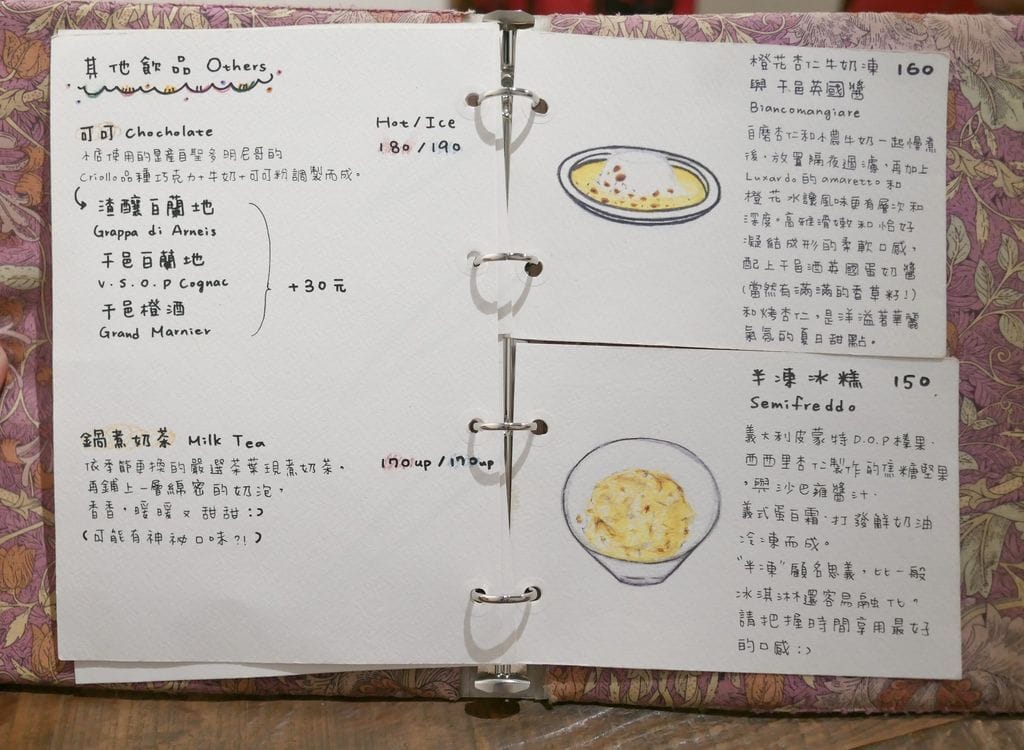 其他飲品 Others
Hot / Ice
可可 Chocholate
180 / 190
本店使用的是產自聖多明尼哥的
Criollo品種巧克力+牛奶+可可粉調製而成。
渣釀白蘭地
Grappa di Arneis
干邑白蘭地
V.S.O.P Cognac
+30元
干邑橙酒
Grand Marnier
鍋煮奶茶 Milk Tea
170up / 170up
依季節更換的嚴選茶葉現煮奶茶。
再鋪上一層綿密的奶泡,
香香,暖暖又甜甜:)
(可能有神祕口味?!)
橙花杏仁牛奶凍 160
與干邑英國醬
Biancomangiare
自磨杏仁和小農牛奶一起慢煮
後,放置隔夜過濾,再加上
Luxardo的amaretto和
橙花水讓風味更有層次和
深度。高雅滑嫩和恰好
凝結成形的柔軟口感,
配上干邑酒英國蛋奶醬
(當然有滿滿的香草籽!)
和烤杏仁,是洋溢著華麗
氣氛的夏日甜點。
半凍冰糕 150
Semifreddo
義大利皮蒙特D.O.P榛果.
西西里杏仁製作的焦糖堅果
,與沙巴雍醬汁.
義式蛋白霜.打發鮮奶油
冷凍而成。
"半凍"顧名思義,比一般
冰淇淋還容易融化。
請把握時間享用最好
的口感:)